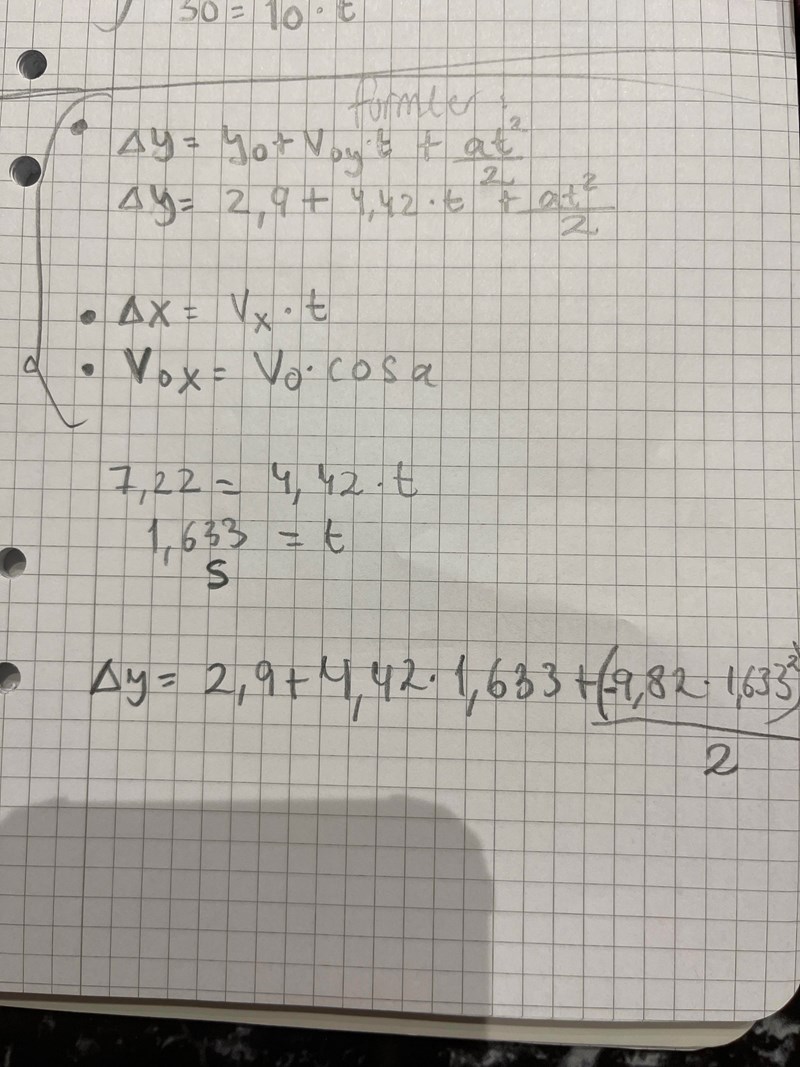 30 = 10 · t
formler:
• Δy = y₀ + V₀y · t + at²/2
Δy = 2,9 + 4,42 · t + at²/2
• Δx = Vₓ · t
• V₀x = V₀ · cos a
7,22 = 4,42 · t
1,633 = t
s
Δy = 2,9 + 4,42 · 1,633 + (-9,82 · 1,633²)/2